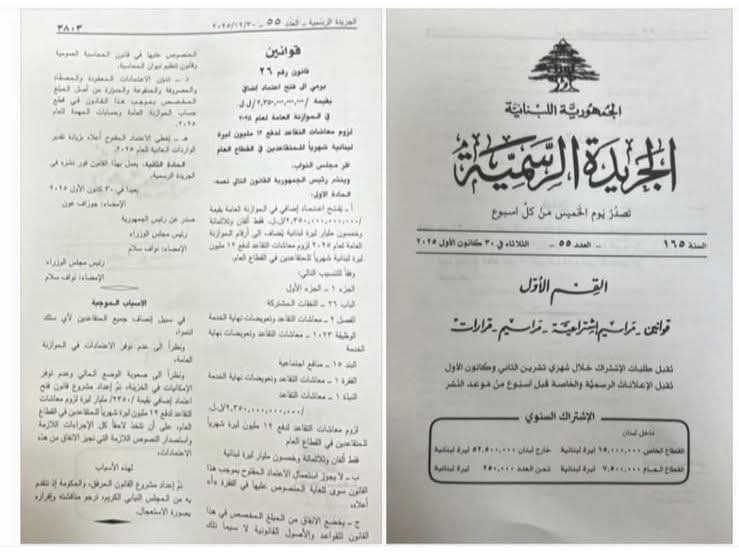 الجمهورية اللبنانية
الجريدة الرسمية
تصدر يوم الخميس من كل اسبوع
السنة ١٦٥ - العدد ٥٥ - الثلاثاء في ٣٠ كانون الأول ٢٠٢٥
القسم الأول
قوانين - مراسيم إشتراعية - مراسيم - قرارات
تقبل طلبات الإشتراك خلال شهري تشرين الثاني وكانون الأول
تقبل الإعلانات الرسمية والخاصة قبل اسبوع من موعد النشر
الإشتراك السنوي
داخل لبنان
القطاع الخاص ١٥,٠٠٠,٠٠٠ ليرة لبنانية خارج لبنان ٥٢,٥٠٠,٠٠٠ ليرة لبنانية
القطاع العام ٧,٥٠٠,٠٠٠ ليرة لبنانية ثمن العدد ٢٥٠,٠٠٠ ليرة لبنانية
الجريدة الرسمية - العدد ٥٥ - ٢٠٢٥/١٢/٣٠
٣٨٠٣
قوانين
قانون رقم ٢٦
يرمي الى فتح اعتماد إضافي
بقيمة /٢,٣٥٠,٠٠٠,٠٠٠,٠٠٠/ل.ل.
في الموازنة العامة لعام ٢٠٢٥
لزوم معاشات التقاعد لدفع ١٢ مليون ليرة
لبنانية شهرياً للمتقاعدين في القطاع العام
اقر مجلس النواب،
وينشر رئيس الجمهورية القانون التالي نصه:
المادة الأولى:
أ - يفتح اعتماد إضافي في الموازنة العامة بقيمة
/٢,٣٥٠,٠٠٠,٠٠٠,٠٠٠/ل.ل. فقط ألفان وثلاثمائة
وخمسون مليار ليرة لبنانية يُضاف الى أرقام الموازنة
العامة لعام ٢٠٢٥ لزوم معاشات التقاعد لدفع ١٢ مليون
ليرة لبنانية شهرياً للمتقاعدين في القطاع العام.
وفقاً للتنسيب التالي:
الجزء ١ - الجزء الأول
الباب ٢٦ - النفقات المشتركة
الفصل ٢ - معاشات التقاعد وتعويضات نهاية الخدمة
الوظيفة ١٠٢٣ - معاشات التقاعد وتعويضات نهاية
الخدمة
البند ١٥ - منافع اجتماعية
الفقرة ١ - معاشات التقاعد وتعويضات نهاية الخدمة
النبذة ١ - معاشات التقاعد
/٢,٣٥٠,٠٠٠,٠٠٠,٠٠٠/ل.ل.
لزوم معاشات التقاعد لدفع ١٢ مليون ليرة شهرياً
للمتقاعدين في القطاع العام
فقط ألفان وثلاثمائة وخمسون مليار ليرة لبنانية
ب - لا يجوز استعمال الاعتماد المفتوح بموجب هذا
القانون سوى للغاية المنصوص عليها في الفقرة «أ»
أعلاه.
ج - يخضع الانفاق من المبلغ المخصص في هذا
القانون للقواعد والأصول القانونية لا سيما تلك
المنصوص عليها في قانون المحاسبة العمومية
وقانون تنظيم ديوان المحاسبة.
د - تدوّن الاعتمادات المعقودة والمصفّاة
والمصروفة والمدفوعة والمدورة من أصل المبلغ
المخصص بموجب هذا القانون في قطع
حساب الموازنة العامة وحسابات المهمة للعام
٢٠٢٥.
هـ - يغطى الاعتماد المفتوح أعلاه بزيادة تقدير
الواردات العادية للعام ٢٠٢٥.
المادة الثانية: يعمل بهذا القانون فور نشره في
الجريدة الرسمية.
بعبدا في ٣٠ كانون الأول ٢٠٢٥
الإمضاء: جوزاف عون
صدر عن رئيس الجمهورية
رئيس مجلس الوزراء
الإمضاء: نواف سلام
رئيس مجلس الوزراء
الإمضاء: نواف سلام
الأسباب الموجبة
في سبيل إنصاف جميع المتقاعدين لأي سلك
انتموا،
ونظراً الى عدم توفر الاعتمادات في الموازنة
العامة،
ونظراً الى صعوبة الوضع الحالي وعدم توفر
الإمكانيات في الخزينة، تمّ إعداد مشروع قانون فتح
اعتماد إضافي بقيمة /٢٣٥٠/ مليار ليرة لمعاشات
التقاعد لدفع ١٢ مليون ليرة شهرياً للمتقاعدين في القطاع
العام، على أن تتخذ لاحقاً كل الإجراءات اللازمة
واستصدار النصوص اللازمة التي تجيز الانفاق من هذه
الاعتمادات.
لهذه الأسباب
تمّ إعداد مشروع القانون المرفق، والحكومة إذ تتقدم
به من المجلس النيابي الكريم، ترجو مناقشته وإقراره
بصورة الاستعجال.